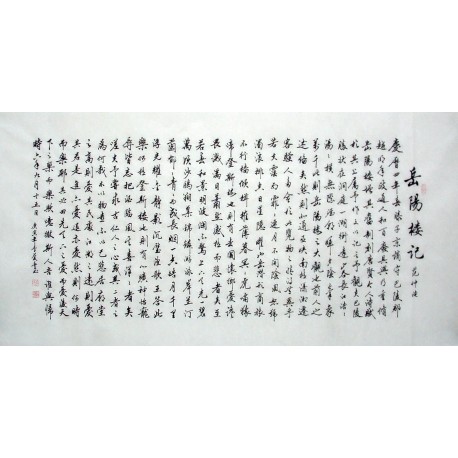 岳陽樓記 范仲淹
慶曆四年春滕子京謫守巴陵郡
越明年政通人和百廢具興乃重脩
岳陽樓增其舊制刻唐賢今人詩賦
於其上屬予作文以記之予觀夫巴陵
勝狀在洞庭一湖銜遠山吞長江浩浩
湯湯橫無際涯朝暉夕陰氣象
萬千此則岳陽樓之大觀也前人之
述備矣然則北通巫峽南極瀟湘遷
客騷人多會於此覽物之情得無異乎
若夫霪雨霏霏連月不開陰風怒號
濁浪排空日星隱曜山岳潛形商旅
不行檣傾楫摧薄暮冥冥虎嘯猿
啼登斯樓也則有去國懷鄉憂讒
畏譏滿目蕭然感極而悲者矣至
若春和景明波瀾不驚上下天光一碧
萬頃沙鷗翔集錦鱗游泳岸芷汀蘭
郁郁青青而或長煙一空皓月千里
浮光耀金靜影沉璧漁歌互答此
樂何極登斯樓也則有心曠神怡寵
辱皆忘把酒臨風其喜洋洋者矣
嗟夫予嘗求古仁人之心或異二者之
為何哉不以物喜不以己悲居廟堂
之高則憂其民處江湖之遠則憂
其君是進亦憂退亦憂然則何時
而樂耶其必曰先天下之憂而憂後天
下之樂而樂歟噫微斯人吾誰與歸
時六年九月十五日